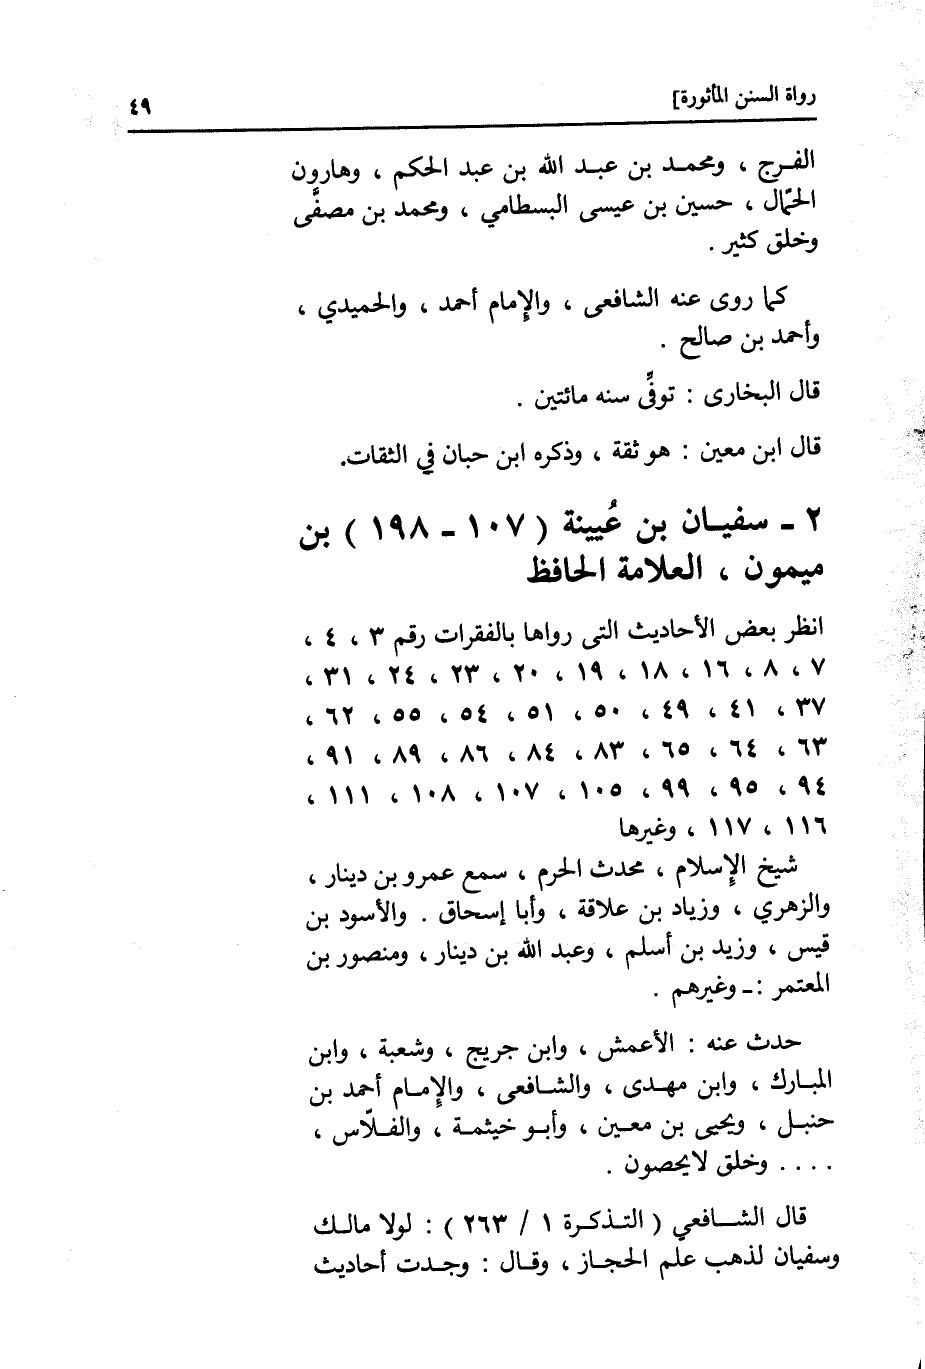 رواة السنن المأثورة]
٤٩
الفـرج ، ومحمـد بن عبـد الله بن عبد الحكم ، وهارون
الحمّال ، حسين بن عيسى البسطامي ، ومحمد بن مصفَّى
وخلق كثير .
كما روى عنه الشافعى ، والإمام أحمد ، والحميدي ،
وأحمد بن صالح .
قال البخارى : توفِّى سنه مائتين .
قال ابن معين : هو ثقة ، وذكره ابن حبان في الثقات.
٢ ـ سفيـان بن عُيينة ( ١٠٧ ـ ١٩٨ ) بن
ميمون ، العلامة الحافظ
انظر بعض الأحاديث التى رواها بالفقرات رقم ٣ ، ٤ ،
٧ ، ٨ ، ١٦ ، ١٨ ، ١٩ ، ٢٠ ، ٢٣ ، ٢٤ ، ٣١ ،
٣٧ ، ٤١ ، ٤٩ ، ٥٠ ، ٥١ ، ٥٤ ، ٥٥ ، ٦٢ ،
٦٣ ، ٦٤ ، ٦٥ ، ٨٣ ، ٨٤ ، ٨٦ ، ٨٩ ، ٩١ ،
٩٤ ، ٩٥ ، ٩٩ ، ١٠٥ ، ١٠٧ ، ١٠٨ ، ١١١ ،
١١٦ ، ١١٧ ، وغيرها
شيخ الإسلام ، محدث الحرم ، سمع عمرو بن دينار ،
والزهري ، وزياد بن علاقة ، وأبا إسحاق . والأسود بن
قيس ، وزيد بن أسلم ، وعبد الله بن دينار ، ومنصور بن
المعتمر :ـ وغيرهم .
حدث عنه : الأعمش ، وابن جريج ، وشعبة ، وابن
المبـارك ، وابن مهـدى ، والشـافعى ، والإمـام أحمد بن
حنبـل ، ويحيى بن معـين ، وأبـو خيثمـة ، والفـلّاس ،
.... وخلق لايحصون .
قال الشـافعي ( التـذكـرة ١ / ٢٦٣ ) : لولا مالـك
وسفيان لذهب علم الحجـاز ، وقـال : وجـدت أحاديث